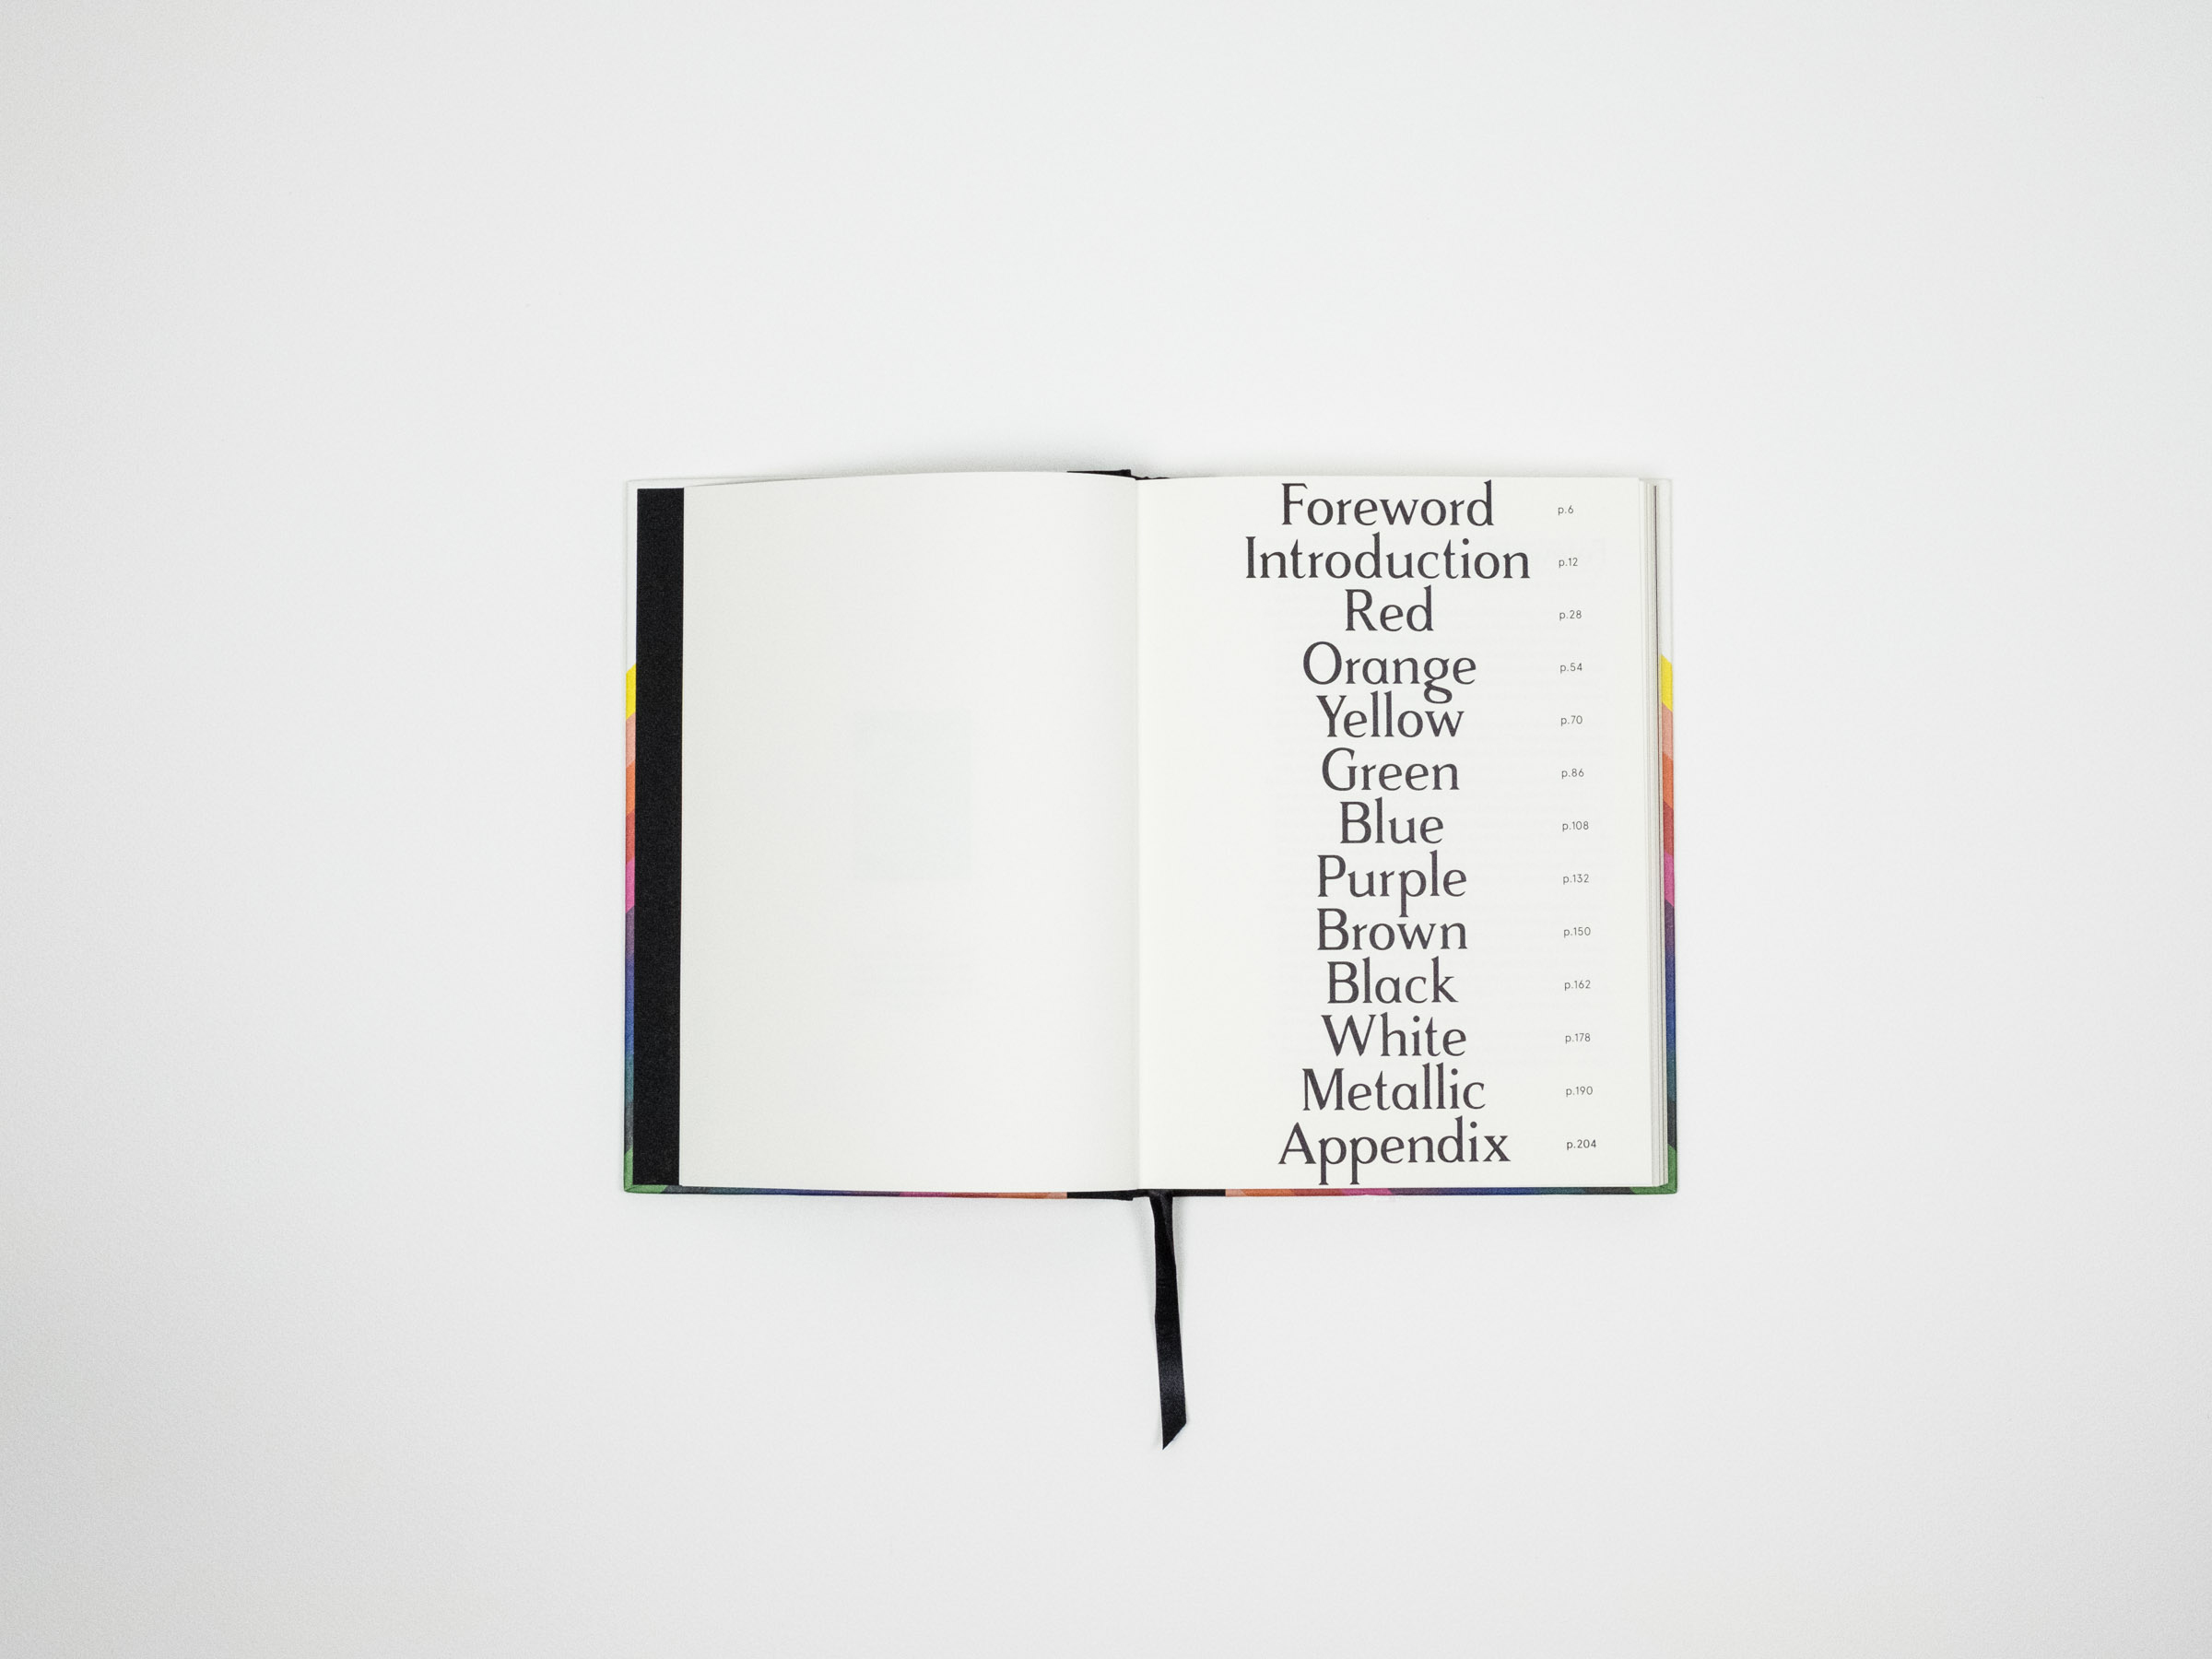 Foreword p.6
Introduction p.12
Red p.28
Orange p.54
Yellow p.70
Green p.86
Blue p.108
Purple p.132
Brown p.150
Black p.162
White p.178
Metallic p.190
Appendix p.204